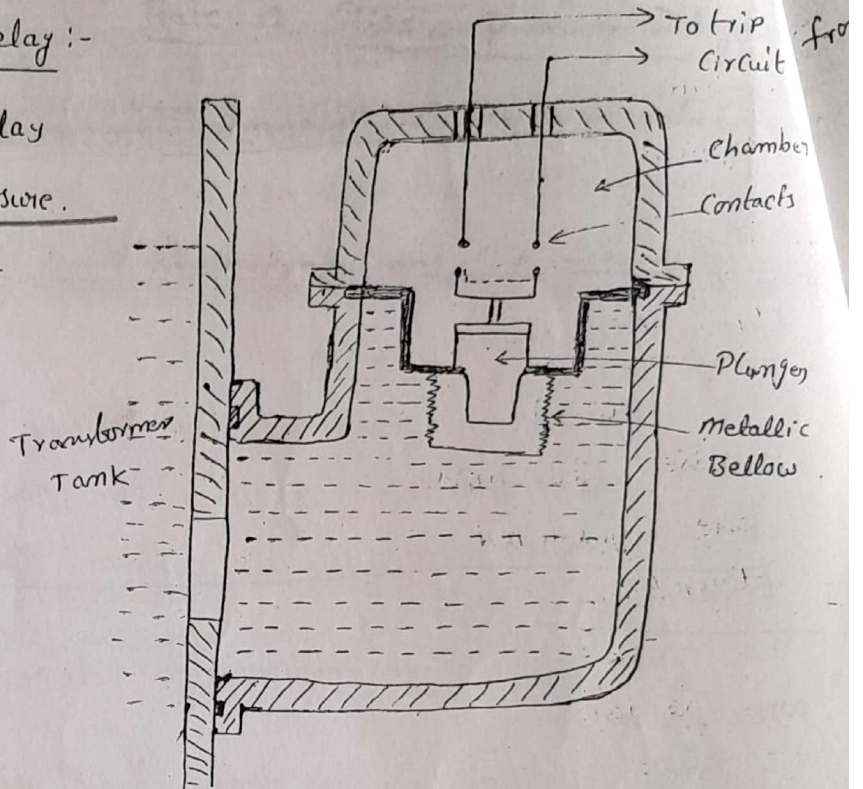 elay :-
lay
sure.
To trip
Circuit
fro
Chamber
Contacts
Plunger
Metallic
Bellow
Transformer
Tank